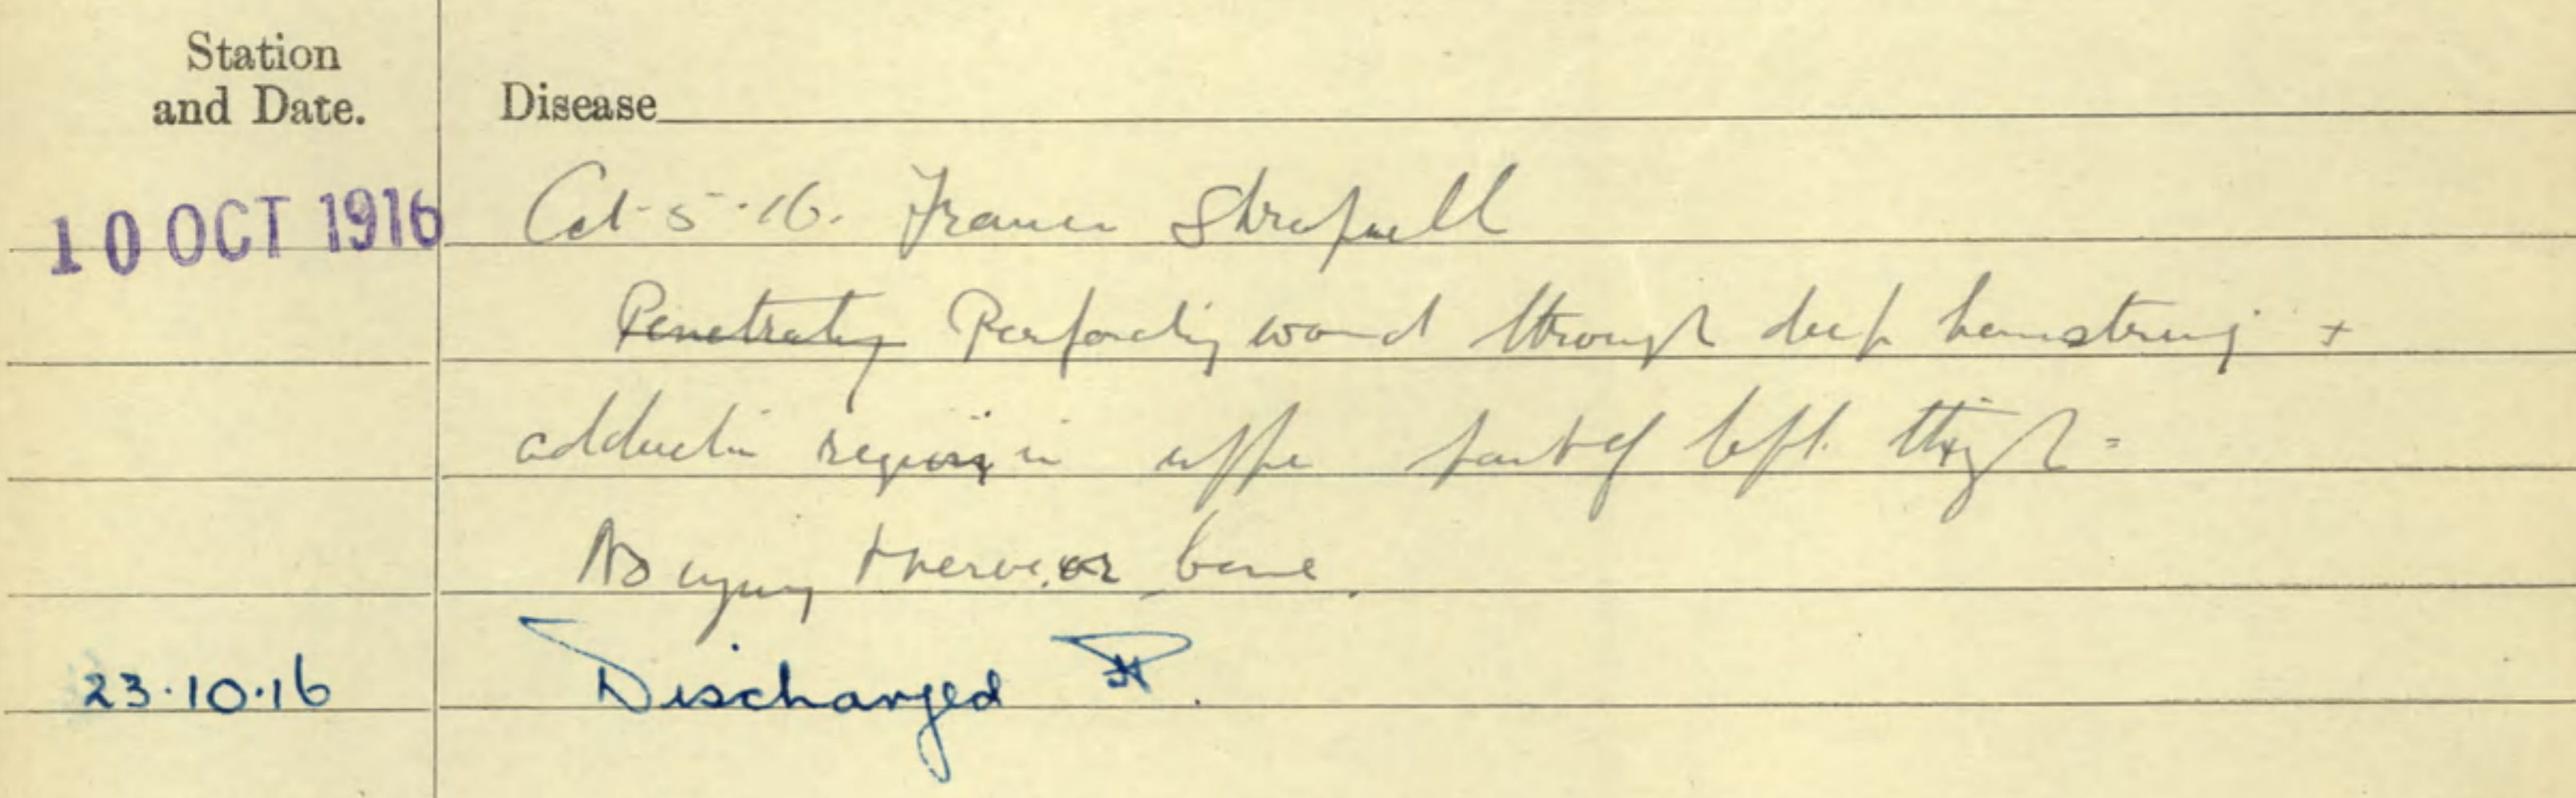 Station
and Date.
Disease
10 OCT 1916
Oct-5-16. France Shrapnell
Penetrating Perforating wound through deep hamstring +
adductor region in upper part of left thigh -
No injury nerve or bone.
23.10.16 Discharged